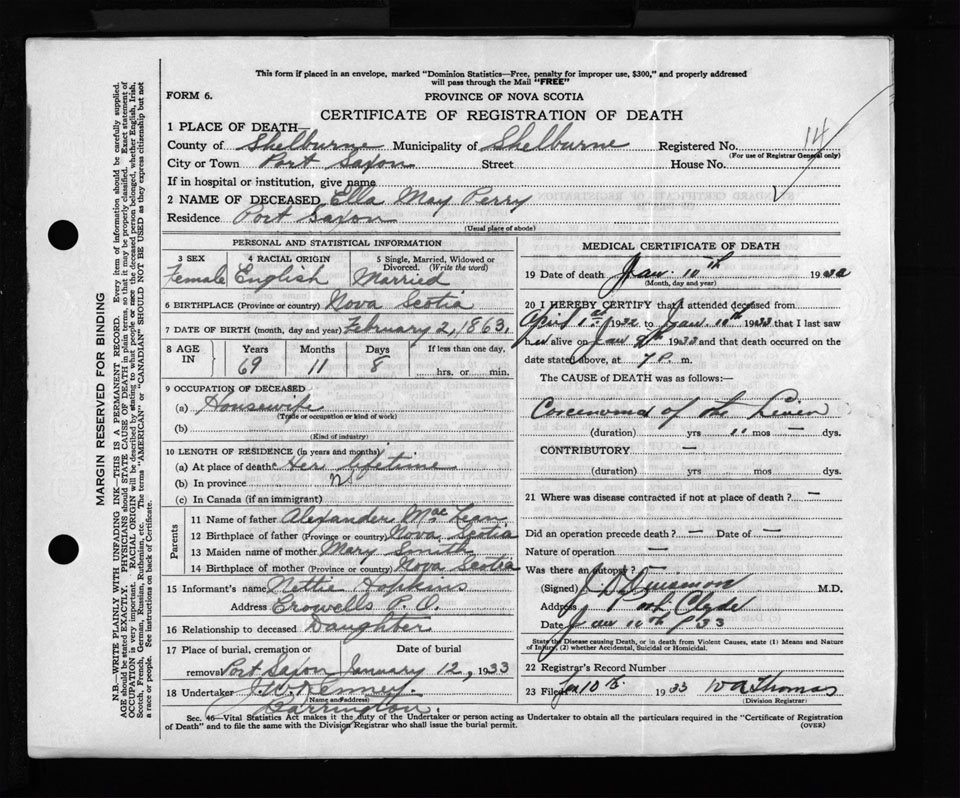 This form if placed in an envelope, marked "Dominion Statistics—Free, penalty for improper use, $300," and properly addressed
will pass through the Mail "FREE"
FORM 6.
PROVINCE OF NOVA SCOTIA
CERTIFICATE OF REGISTRATION OF DEATH
14
1 PLACE OF DEATH—
County of Shelburne Municipality of Shelburne Registered No.
(For use of Registrar General only)
City or Town Port Saxon Street House No.
If in hospital or institution, give name
2 NAME OF DECEASED Ella May Perry
Residence Port Saxon
(Usual place of abode)
PERSONAL AND STATISTICAL INFORMATION
3 SEX 4 RACIAL ORIGIN 5 Single, Married, Widowed or Divorced. (Write the word)
Female English Married
6 BIRTHPLACE (Province or country) Nova Scotia
7 DATE OF BIRTH (month, day and year) February 2, 1863.
8 AGE IN Years Months Days If less than one day.
69 11 8 hrs. or min.
9 OCCUPATION OF DECEASED
(a) Housewife
(Trade or occupation or kind of work)
(b)
(Kind of industry)
10 LENGTH OF RESIDENCE (in years and months)
(a) At place of death Her lifetime
(b) In province
(c) In Canada (if an immigrant)
Parents
11 Name of father Alexander MacLean
12 Birthplace of father (Province or country) Nova Scotia
13 Maiden name of mother Mary Smith
14 Birthplace of mother (Province or country) Nova Scotia
15 Informant's name Nettie Hopkins
Address Crowells P.O.
16 Relationship to deceased Daughter
17 Place of burial, cremation or Date of burial
removal Port Saxon January 12, 1933
18 Undertaker J.W. Kenney.
(Name and address)
Barrington.
MEDICAL CERTIFICATE OF DEATH
19 Date of death Jan. 10th 193
(Month, day and year)
20 I HEREBY CERTIFY that I attended deceased from
April 1st 1932 to Jan. 10th 1933 that I last saw
her alive on Jan 9th 1933 and that death occurred on the
date stated above, at 7 P. m.
The CAUSE of DEATH was as follows:—
Carcenoma of the Liver
(duration) yrs mos — dys.
CONTRIBUTORY —
(duration) yrs mos dys.
21 Where was disease contracted if not at place of death? —
Did an operation precede death? — Date of —
Nature of operation —
Was there an autopsy? —
(Signed) M.D.
Address Port Clyde
Date Jan 10th 1933
State the Disease causing Death, or in death from Violent Causes, state (1) Means and Nature
of Injury, (2) whether Accidental, Suicidal or Homicidal.
22 Registrar's Record Number
23 Filed Jan 10th 1933 W A Thomas
(Division Registrar)
Sec. 46—Vital Statistics Act makes it the duty of the Undertaker or person acting as Undertaker to obtain all the particulars required in the "Certificate of Registration
of Death" and to file the same with the Division Registrar who shall issue the burial permit.
(OVER)
MARGIN RESERVED FOR BINDING
N.B.—WRITE PLAINLY WITH UNFADING INK—THIS IS A PERMANENT RECORD. Every item of information should be carefully supplied.
AGE should be stated EXACTLY. PHYSICIANS should STATE CAUSE OF DEATH in plain terms, so that it may be properly classified. Exact statement of
OCCUPATION is very important. RACIAL ORIGIN will be described by stating to what people or race the deceased person belonged, whether English, Irish,
Scotch, French, German, Russian, Ruthenian, etc. The terms "AMERICAN" or "CANADIAN" SHOULD NOT BE USED as they express citizenship but not
a race or people. See instructions on back of Certificate.